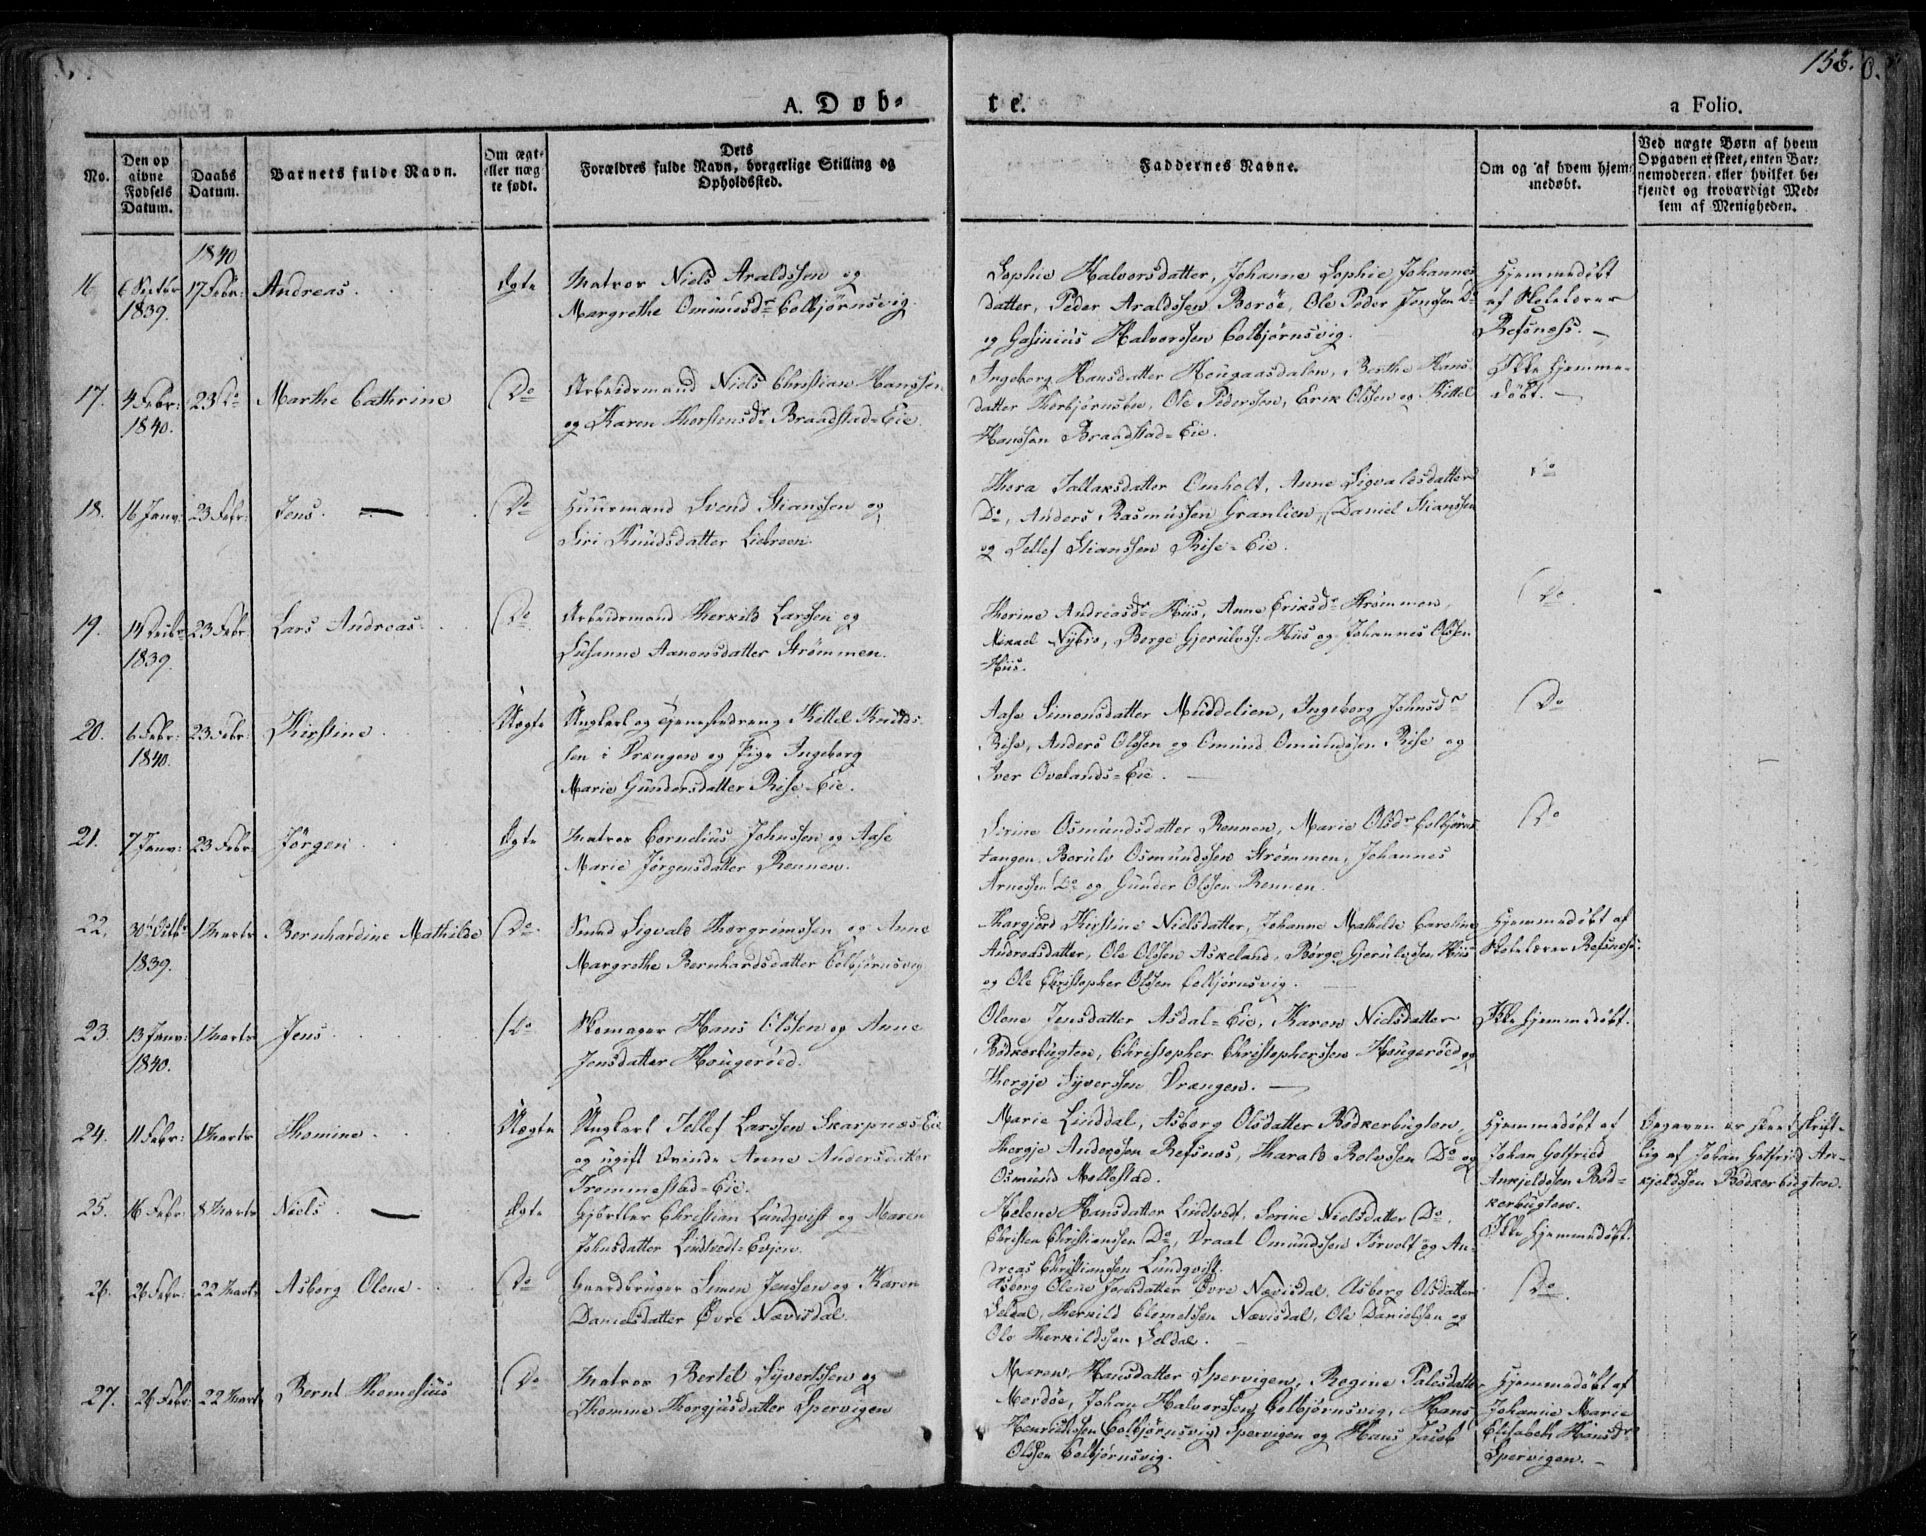 153.
A. Døb-
te.
a Folio.
No.
Den op
givne
Fødsels
Datum.
Daabs
Datum.
Barnets fulde Navn.
Om ægt-
eller næg
te født.
Dets
Forældres fulde Navn, borgerlige Stilling og
Opholdssted.
Faddernes Navne.
Om og af hvem hjem-
medøbt.
Ved uægte Børn af hvem
Opgaven er skeet, enten Bar-
nemoderen eller hvilket be-
kjendt og troværdigt Med-
lem af Menigheden.
1840
16 6 Dectbr 17 Febr: Andreas. Ægte Matros Niels Araldssen og
1839. Margrethe Omundsdr Colbjørnsvig.
Sophie Halvorsdatter, Johanne Sophie Johannes
datter, Peder Araldssen Borøe, Ole Peder Jenssen Do
og Halvorssen Colbjørnsvig.
Hjemmedøbt
af Skolelærer
Refsness.
17. 4 Febr: 23 Do Marthe Cathrine Do Arbeidsmand Niels Christian Hanssen
1840. og Karen Thorstensdr Braadstad-Eie.
Ingeborg Hansdatter Hougaasdalen, Berthe Hans
datter Thorbjørnsbu, Ole Pederssen, Erik Olssen og Kittel
Hanssen Braadstad-Eie.
Ikke hjemme-
døbt.
18. 16 Janv: 23 Febr: Jens. Do Huusmand Svend Stianssen og
Siri Knudsdatter Liebroen.
Thora Tallaksdatter Omholt, Anne Sigvaldsdatter
Do, Anders Rasmussen Granlien, Daniel Stianssen
og Tellef Stianssen Rise-Eie.
Do
19. 14 Decbr 23 Febr Lars Andreas. Do Arbeidsmand Therkild Larssen og
1839. Susanne Aanonsdatter Strømmen.
Thorine Andreasdr Hiis, Anne Eriksdr Strømmen,
Mikkel Nybro, Berge Gjerulvss: Hiis og Johannes Olssen
Hiis.
Do
20. 6 Febr: 23 Febr: Kirstine. Uægte Ungkarl og Tjenestedreng Kittel Knuds-
1840. sen i Vrængen og Pige Ingeborg
Marie Gundersdatter Rise-Eie.
Aase Simonsdatter Myddelien, Ingeborg Johnsdr
Rise, Anders Olssen og Omund Omundssen Rise og
Iver Ovelands-Eie.
Do
21. 7 Janv: 23 Febr: Jørgen. Ægte Matros Cornelius Johnssen og Aase
Marie Jørgensdatter Rennen.
Sirine Osmundsdatter Rennen, Marie Olsdr Colbjørns
tangen, Berulv Osmundssen Strømmen, Johannes
Arnessen Do og Gunder Olssen Rennen.
Do
22. 30te Octbr 1 Marts Bernhardine Mathilde Do Smed Sigvald Thorgrimssen og Anne
1839. Margrethe Bernhardsdatter Colbjørnsvig
Margjerd Kirstine Nielsdatter, Johanne Mathilde Caroline
Andreasdatter, Ole Olssen Askeland, Børge Gjerulvssen Hiis
og Ole Christopher Olssen Colbjørnsvig.
Hjemmedøbt af
Skolelærer Refsness.
23. 13 Janv: 1 Marts Jens Do Skomager Hans Olssen og Anne
1840. Jensdatter Hougerøed.
Olene Jensdatter Asdal-Eie, Karen Nielsdatter
Bødkerbugten, Christopher Christopherssen Hougerøed og
Thorgje Syverssen Vrængen.
Ikke hjemmedøbt.
24. 11 Febr: 1 Marts Thomine. Uægte Ungkarl Tellef Larssen Skarpnæs-Eie
og ugift Qvinde Anne Andersdatter
Trommestad-Eie.
Marie Linddal, Asborg Olsdatter Bødkerbugten,
Thorgje Anderssen Refsnes, Harald Rolvssen Do og
Osmund Mollestad.
Hjemmedøbt af
Johan Gotfried
Ankjeldssen Bød-
kerbugten.
Opgaven er skeet skrift-
lig af Johan Gotfried An-
kjeldssen Bødkerbugten.
25. 16 Febr: 8 Marts Niels. Ægte Gjørtler Christian Lundqvist og Maren
Johnsdatter Lindtvedt-Evjen.
Helene Hansdatter Lindtvedt, Sirine Nielsdatter Do,
Christen Christianssen Do, Vraal Omundssen Torvolt og An-
dreas Christianssen Lundqvist.
Ikke hjemmedøbt.
26. 26 Febr: 22 Marts Asborg Olene. Do Gaardbruger Simon Jenssen og Karen
Danielsdatter Øvre Nævisdal.
Asborg Olene Jensdatter Øvre Nævisdal, Asborg Olsdatter
Seldal, Therkild Clemetssen Nævisdal, Ole Danielssen og
Ole Therkildssen Seldal.
Do
27. 26 Febr: 22 Marts Bernt Thomesius Do Matros Bertel Syvertssen og
Thomine Thorgjusdatter Spervigen
Maren Hansdatter Spervigen, Regine Palesdatter
Merdøe, Johan Halvorssen Colbjørnsvig, Hans
Henrichssen (Colbjørnsvig) Spervigen og Hans Jacob
Olssen Colbjørnsvig.
Hjemmedøbt af
Johanne Marie
Elisabeth Hansdr
Spervigen.